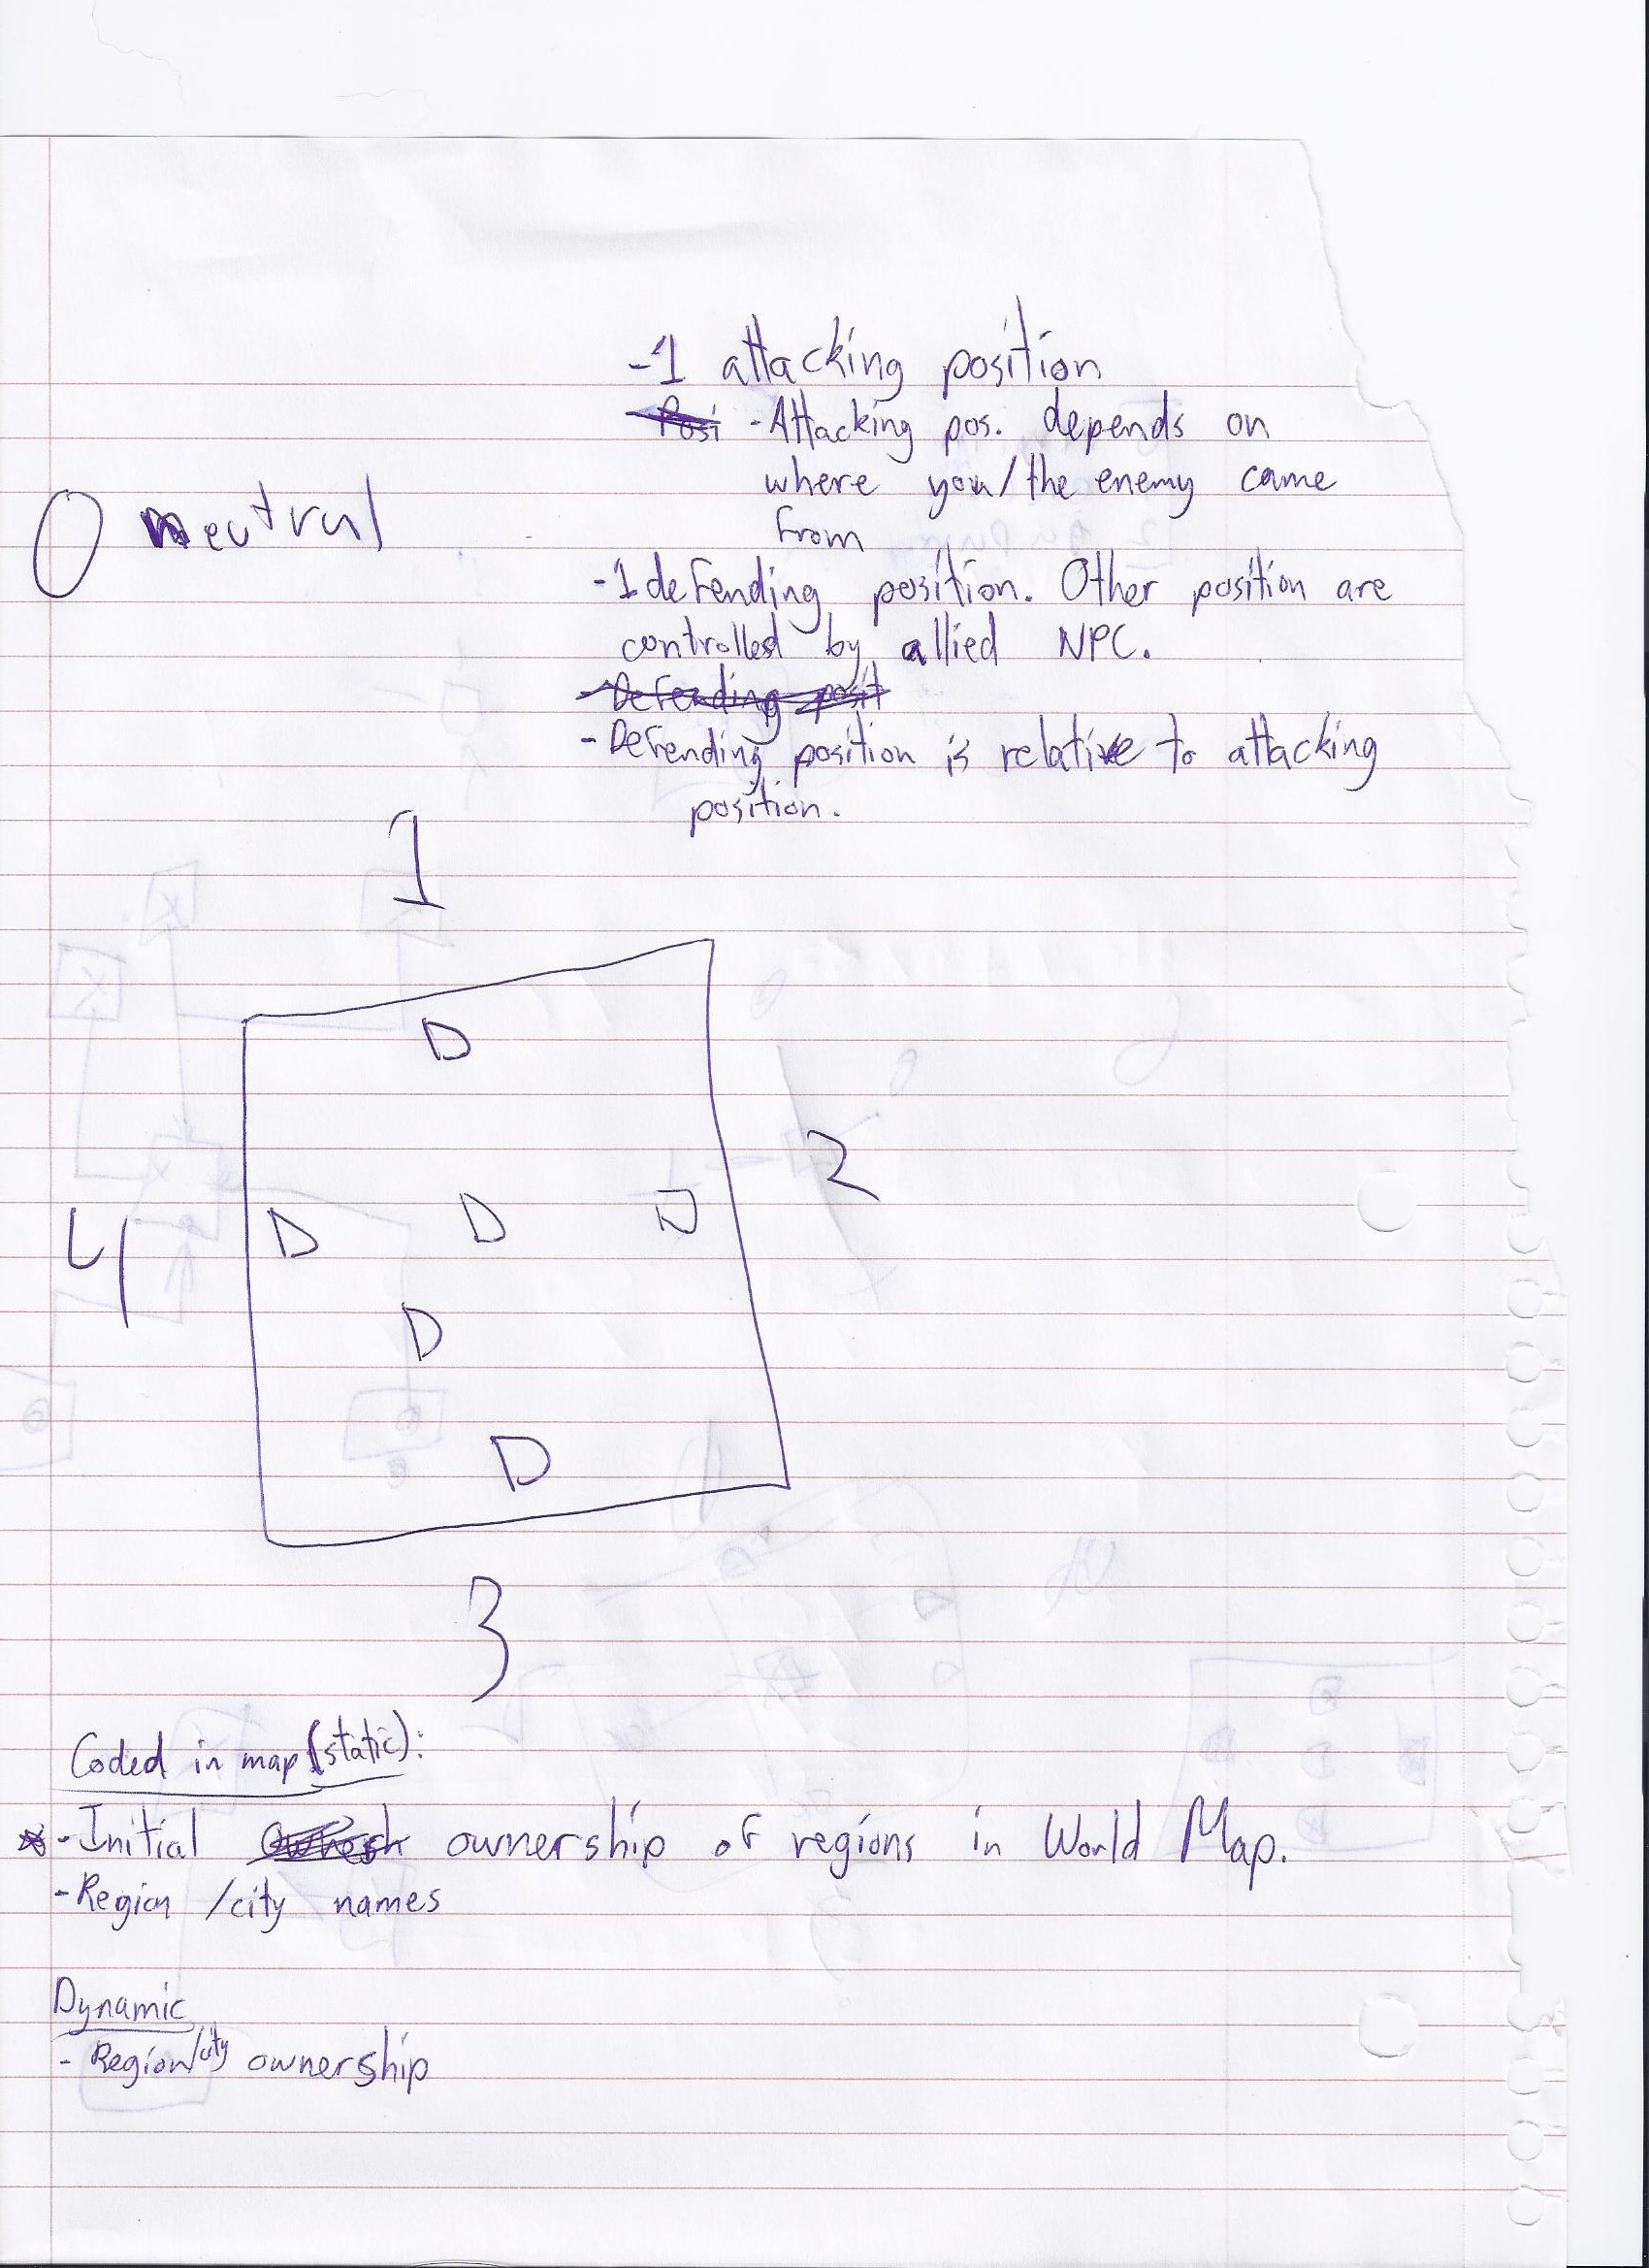 -1 attacking position
Posi -Attacking pos. depends on
where you/the enemy came
from
0 neutral
-1 defending position. Other position are
controlled by allied NPC.
-Defending posit
-Defending position is relative to attacking
position.
1
D
2
4 D D D
D
D
3
Coded in map (static):
*-Initial ownership of regions in World Map.
-Region /city names
Dynamic
- Region/city ownership